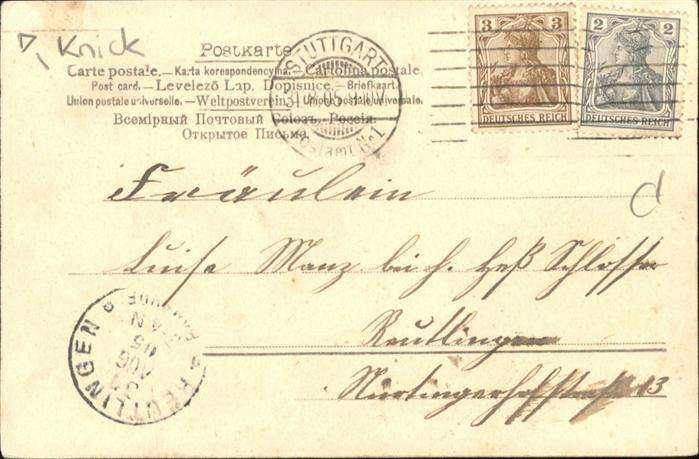 Knick
Postkarte
Carte postale. — Karta korespondencyjna. — Cartolina postale.
Post card. — Levelező Lap. Dopisnice. — Briefkaart.
Union postale universelle. — Weltpostverein. — Unione postale universale.
Всемірный Почтовый Союзъ. Россія.
Открытое Письмо.
STUTTGART
Postamt No 1
3
DEUTSCHES REICH
2
DEUTSCHES REICH
d
Fräulein
Luise Manz bei H. Heß Schlosser
Reutlingen
Nürtingerhofstraße 13
REUTLINGEN
31
AUG
05